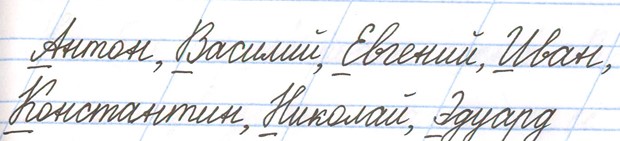 Антон, Василий, Евгений, Иван,
Константин, Николай, Эдуард